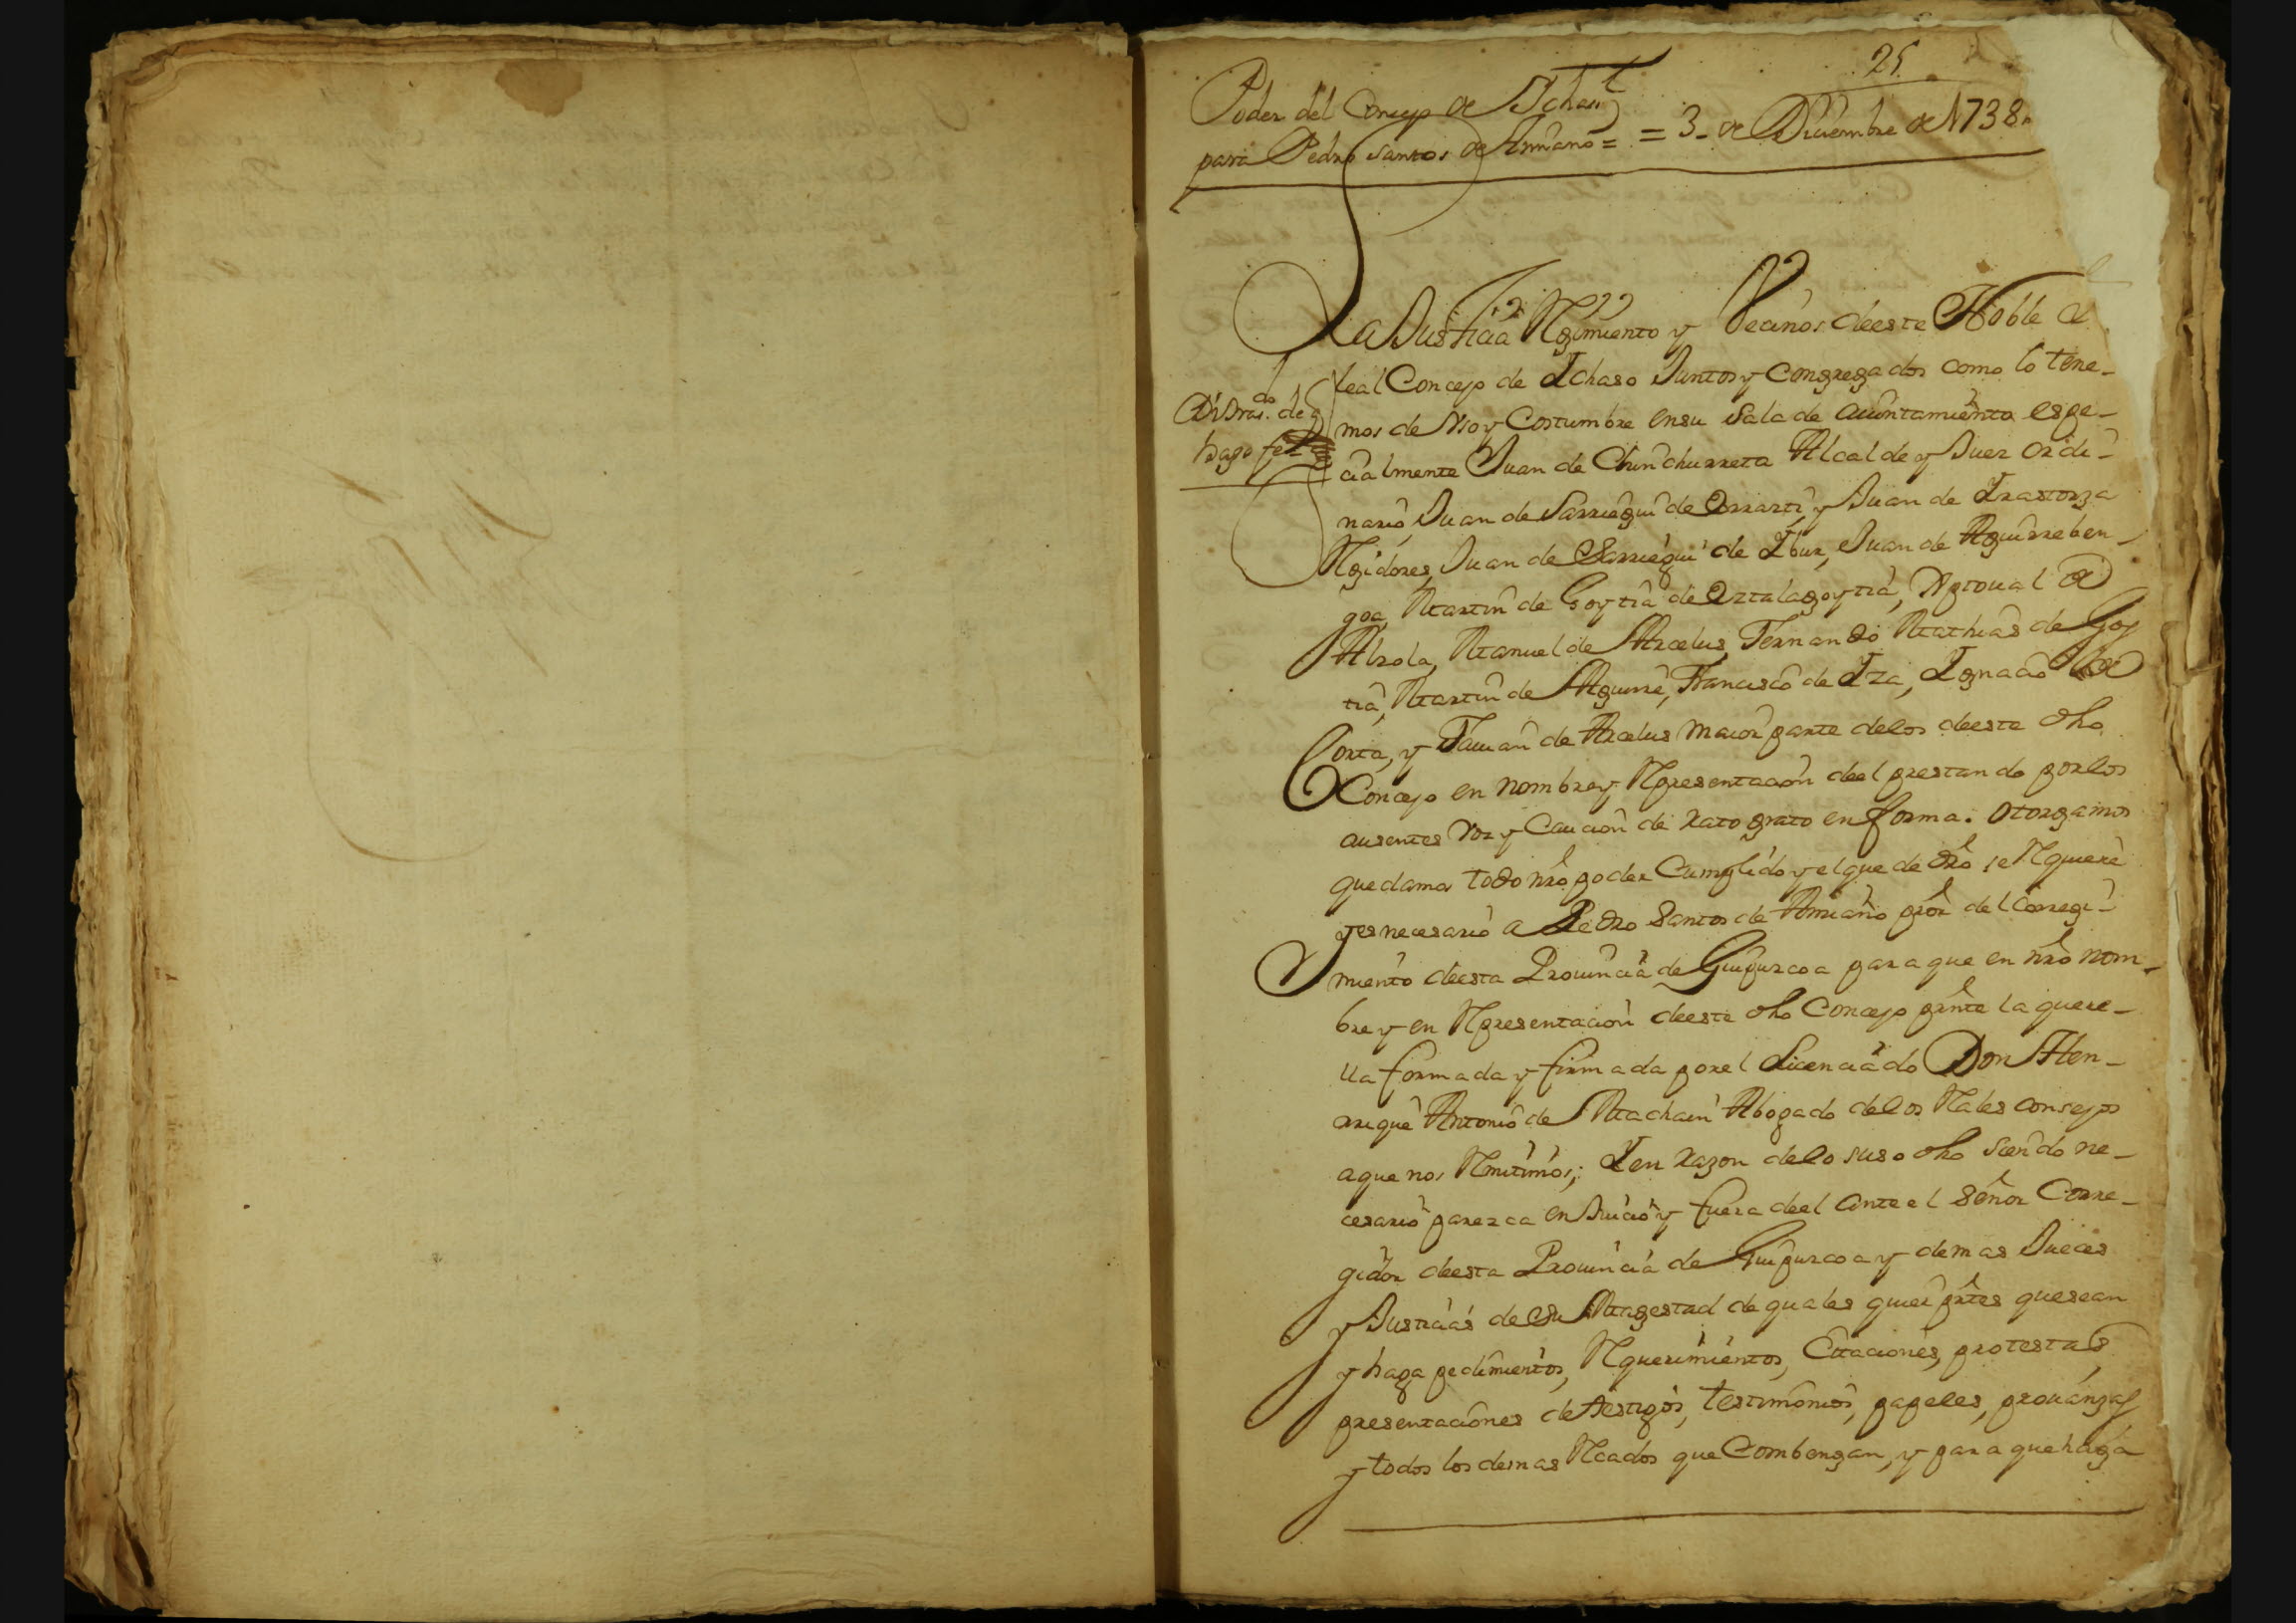 25.
Poder del Concejo de Ichaso
para Pedro Santos de Amiano = = 3- de Diziembre de 1738.
La Justicia Rejimiento y Vecinos deeste Noble y
leal Concejo de Ichaso Juntos y Congregados como lo tene-
Di tras.do de q
hago fee
mos de Uso y Costumbre ensu Sala de aiuntamiento espe-
cialmente Juan de Chinchurreta Alcalde y Juez ordi-
nario, Juan de Sarriegui de Orrarti y Juan de Irastorza
Rejidores, Juan de Sarriegui de Ibur, Juan de Aguirreben-
goa, Martin de Goytia de Oztalagoytia, Xptoual de
Alzola, Manuel de Arcelus, Fernando Mathias de Goy
tia, Martin de Aguirre, Francisco de Iza, Ignacio de
Corta, y Damian de Arcelus maior parte delos deeste dho
Concejo en nombre y Representacion deel prestando porlos
ausentes voz y Caucion de rato grato en forma. Otorgamos
que damos todo nro poder Cumplido y elque de dro se Requiere
y es necesario a Pedro Santos de Amiano pror del Corregi-
miento deesta Prouincia de Guipuzcoa para que en nro nom-
bre y en Representacion deeste dho Concejo presnte la quere-
lla formada y firmada por el Licenciado Don Hen-
rrique Antonio de Machain Abogado delos Rales consejos
aque nos Remitimos; I en razon delo suso dho siendo ne-
cesario parezca en Juicio y fuera deel ante el Señor Corre-
gidor deesta Prouincia de Guipuzcoa y demas Jueces
y Justicias de Su Magestad de quales quier prtes quesean
y haga pedimientos, Requerimientos, Citaciones, protestas
presentaciones de testigos, testimonios, papeles, prouanzas
y todos los demas Rcados que Combengan, y para que haga